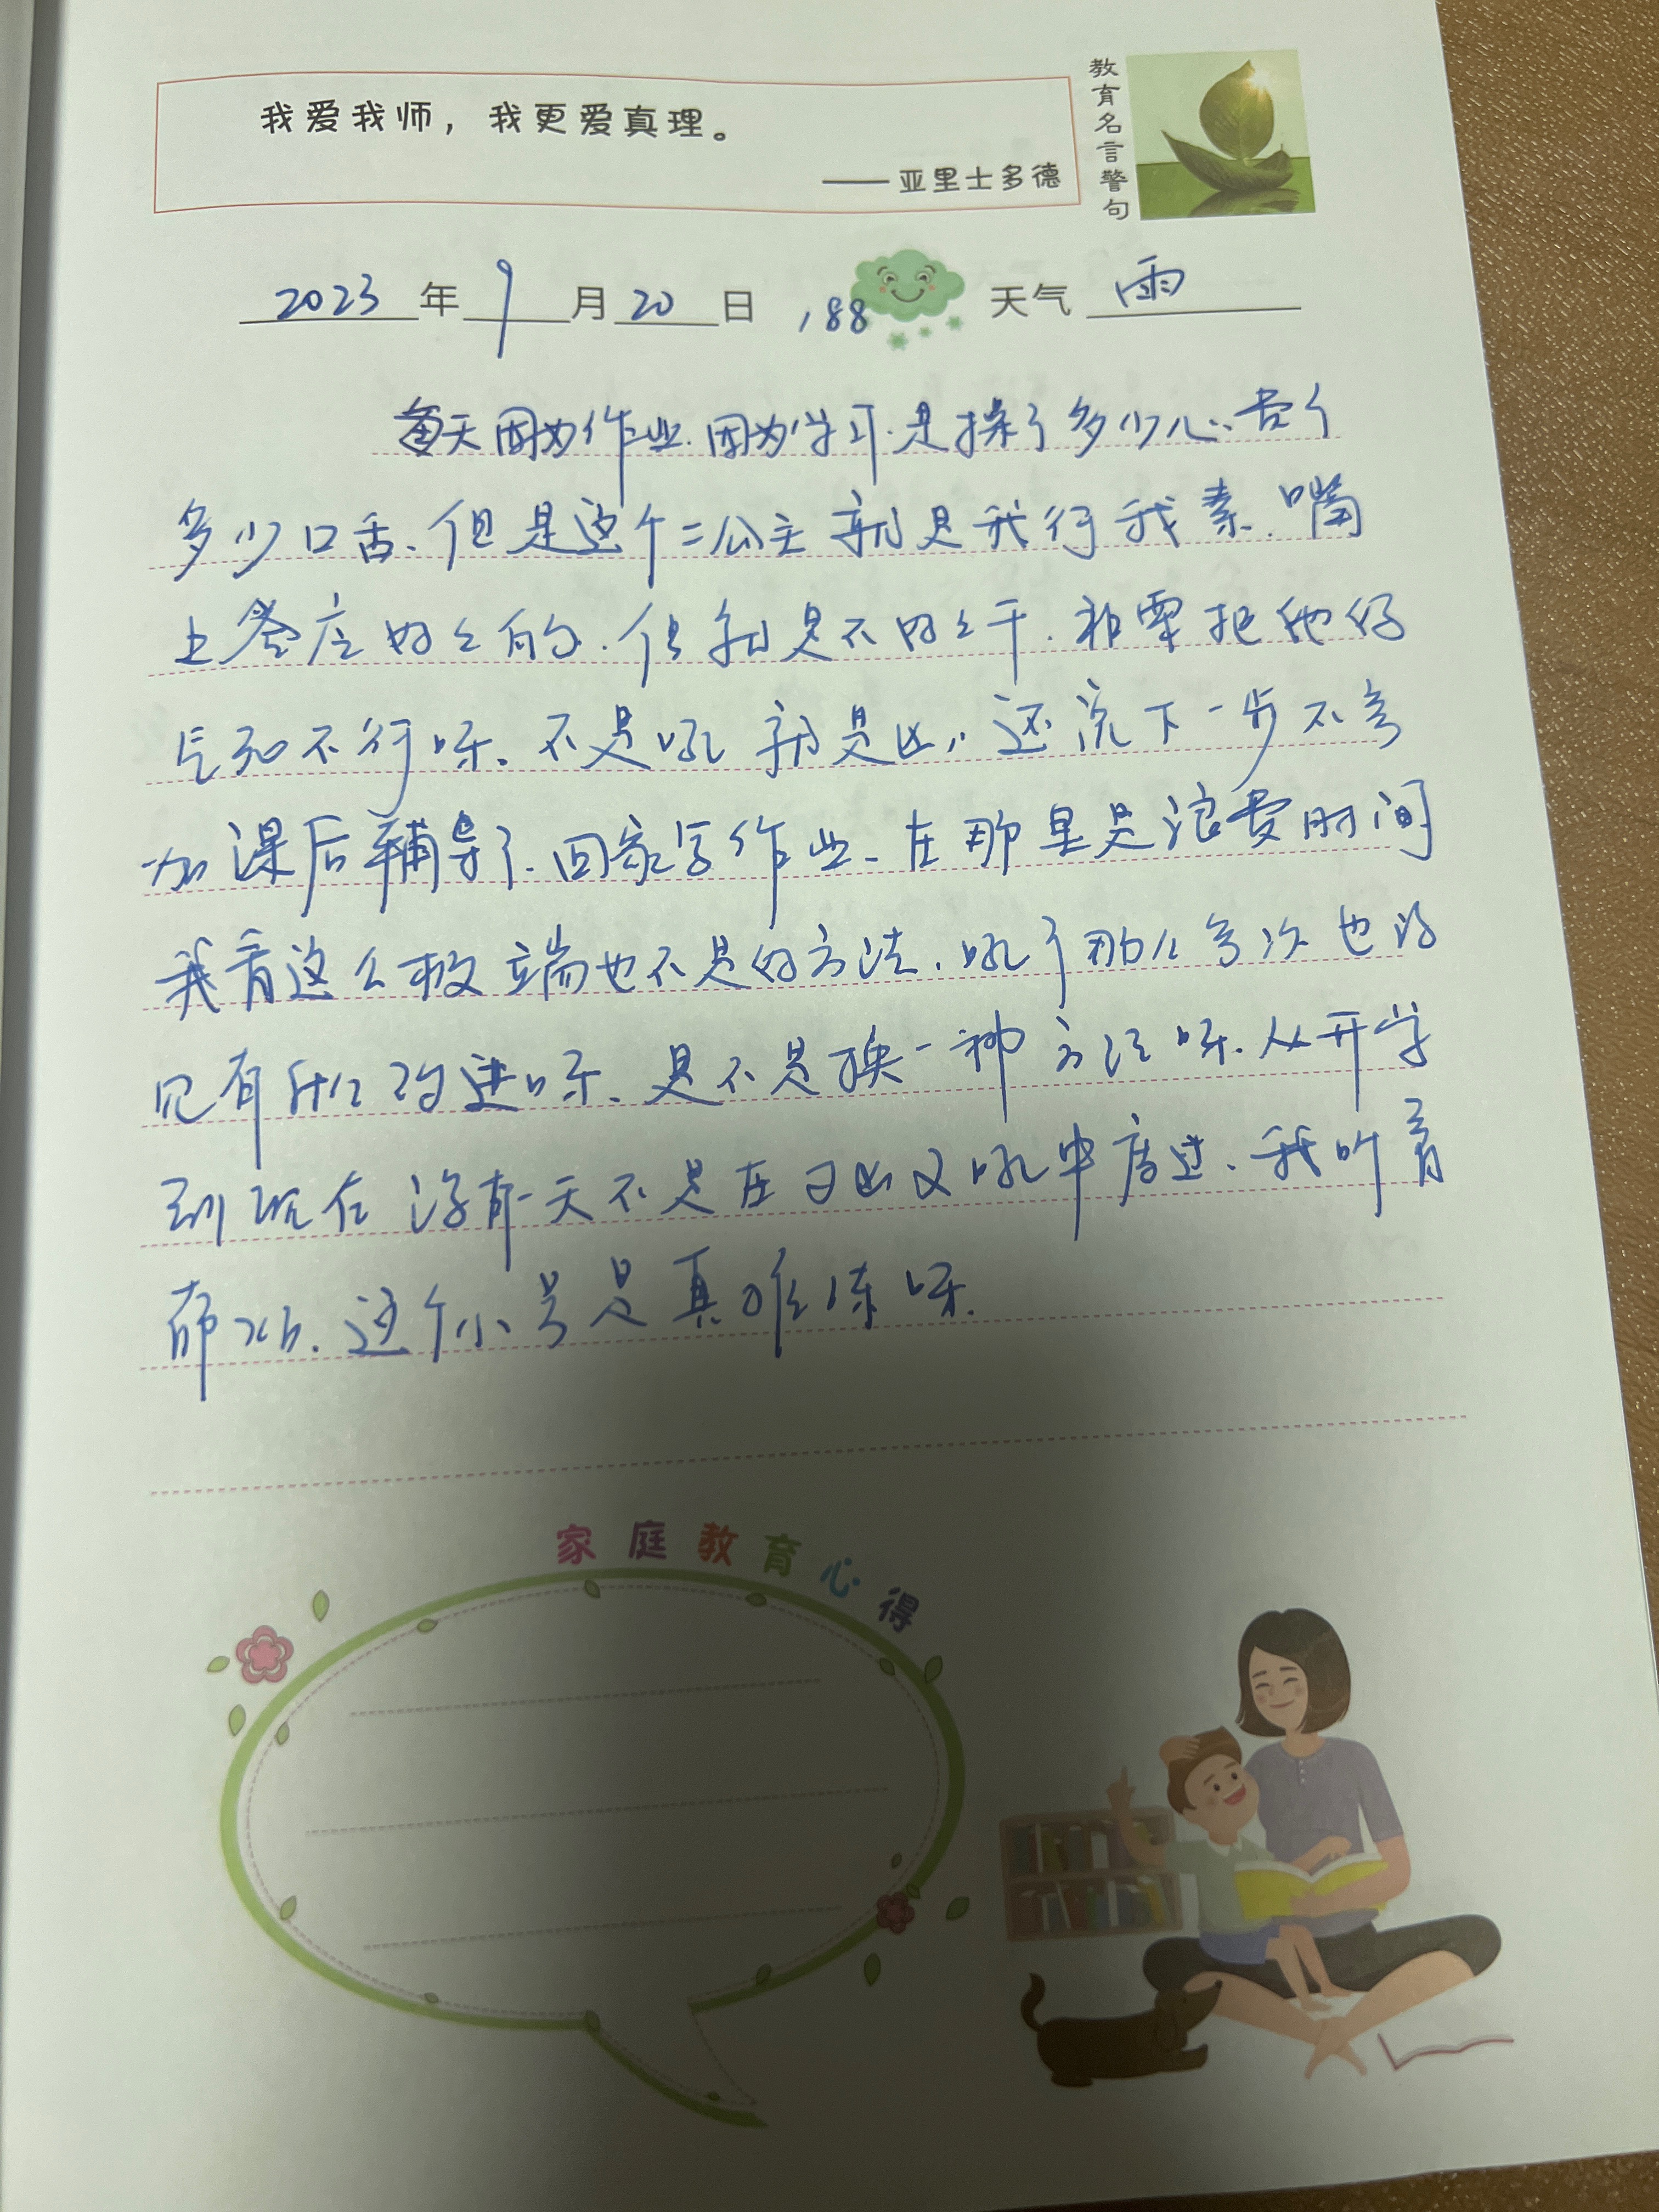 我爱我师，我更爱真理。
——亚里士多德
教育名言警句
2023年9月20日 188 天气 雨
每天因为作业.因为学习.是操了多少心.费了
多少口舌、但是这个二公主就是我行我素.嘴
上答应好好的.但就是不好好干.非要把他妈
气死不行呀、不是吼就是凶，还说下一步不参
加课后辅导了.回家写作业、在那里是浪费时间
我看这么极端也不是的方法.吼了那么多次也没
见有什么改进呀、是不是换一种方法呀.从开学
到现在没有一天不是在又凶又吼中度过、我听着
都.这个小号是真难练呀.
家庭教育心得